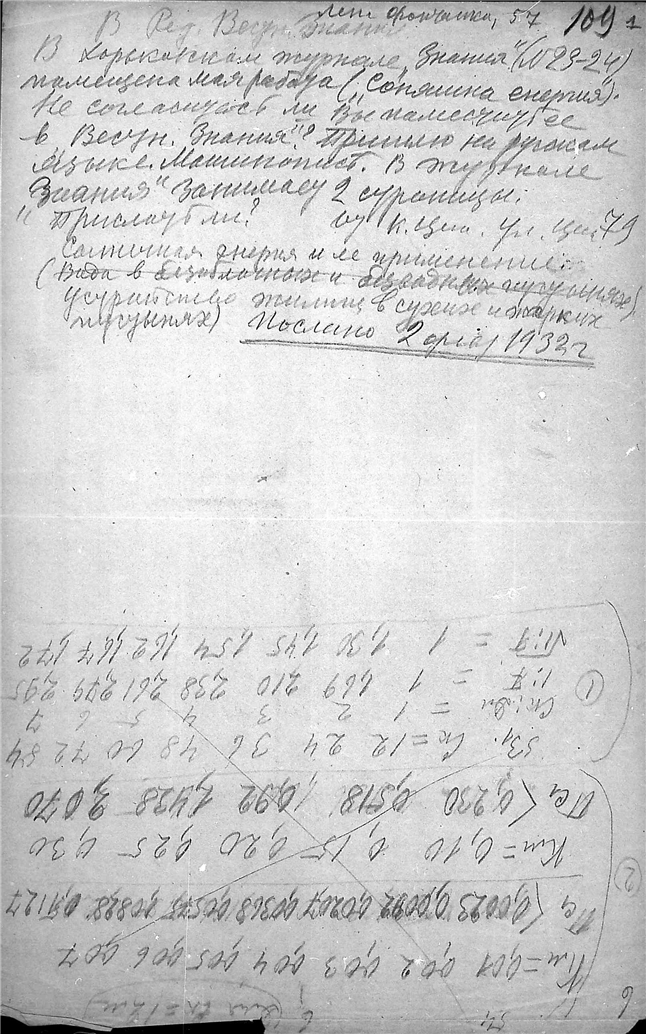 Лен. Фонтанка, 57 109
В Ред. Вестн. Знания
В Харьковском журнале „Знания" (N 23-24)
помещена моя работа („Соняшна енергия).
Не согласитесь ли Вы поместить ее
в Вестн. Знания"? Пришлю на русском
языке. Машинопись. В журнале
„Знания" занимает 2 страницы.
Прислать ли? от К. Циол. Ул. Циол. 79
Солнечная энергия и ее применение.
(Вода в безоблачных и безводных пустынях)
устройство жилищ в сухих и жарких
пустынях) Послано 2 1932 г
6
Км = 0,01 0,02 0,03 0,04 0,05 0,06 0,07
2
0,0023 0,0092 0,0207 0,0368 0,0575 0,0828 0,1127
Км = 0,10 0,15 0,20 0,25 0,30
0,230 0,518 0,92 1,438 2,070
Ск = 12 24 36 48 60 72 84
= 1 2 3 4 5 6 7
1
= 1 1,69 2,10 2,38 2,61 2,79 2,95
= 1 1,30 1,45 1,54 1,62 1,67 1,72